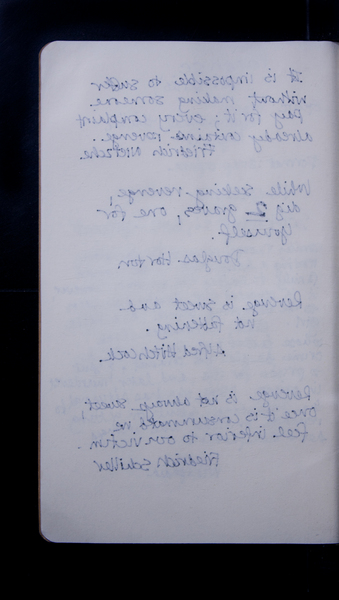 It is impossible to suffer
without making someone
pay for it; every complaint
already contains revenge.
Friedrich Nietzsche
While seeking revenge,
dig 2 graves, one for
yourself.
Douglas Horton
Revenge is sweet and
not fattening.
Alfred Hitchcock.
Revenge is not always sweet,
once it is consummated we
feel inferior to our victim.
Friedrich Schiller